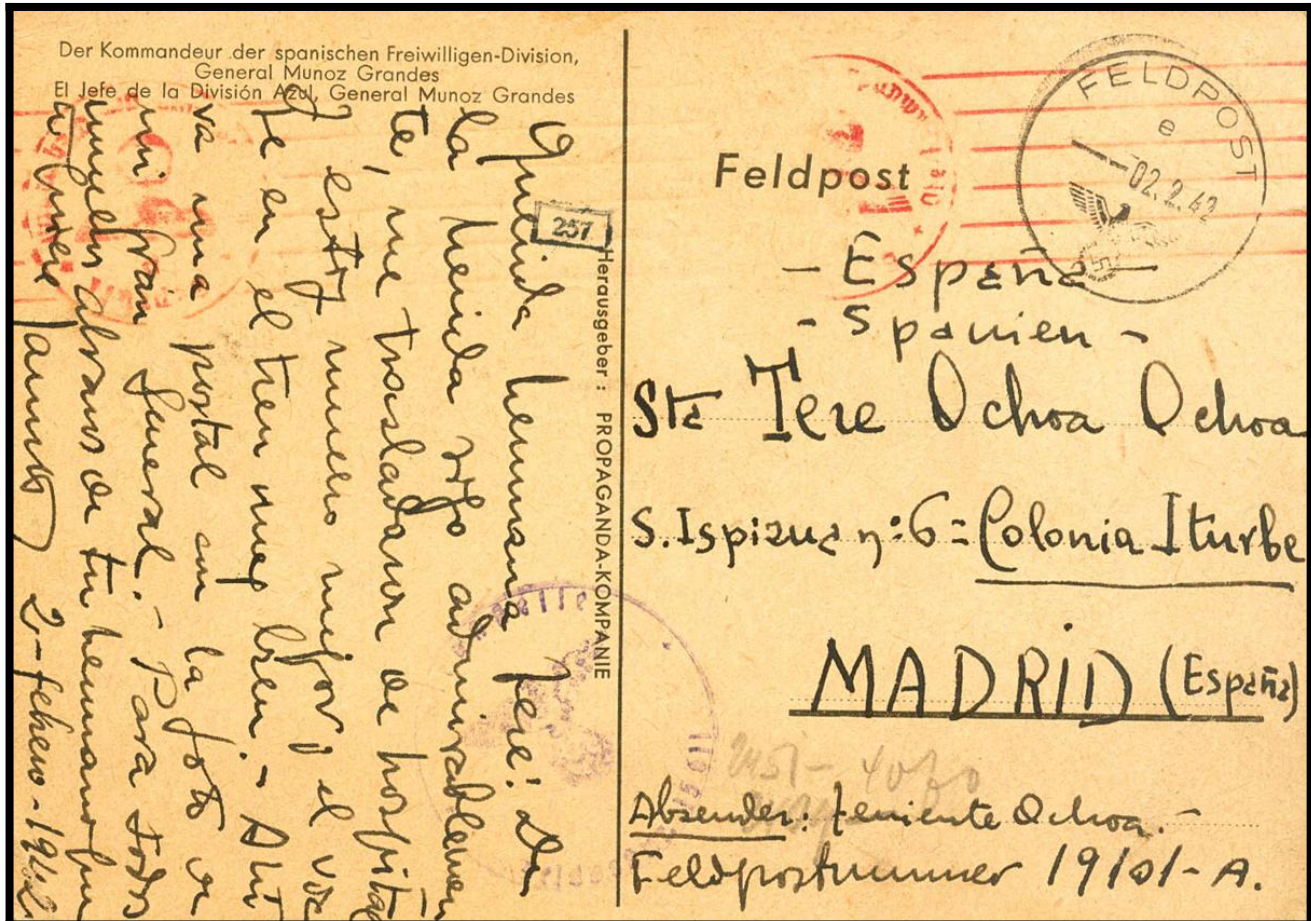 Der Kommandeur der spanischen Freiwilligen-Division,
General Munoz Grandes
El Jefe de la División Azul, General Munoz Grandes
Querida hermana Tere: De
la herida sigo admirablemen
te, me trasladaron de hospital
y estoy mucho mejor y el via
je en el tren muy bien. - Ahí
va una postal con la foto de
mi gran General. - Para todos
muchos abrazos de tu hermano que
te quiere 2-febrero-1942
257
Herausgeber: PROPAGANDA-KOMPANIE
Feldpost
FELDPOST
e
-02.2.42
- España -
- Spanien -
Sta Tere Ochoa Ochoa
S. Ispizua nº 6 = Colonia Iturbe
MADRID (España)
Absender: Teniente Ochoa. -
Feldpostnummer 19101-A.